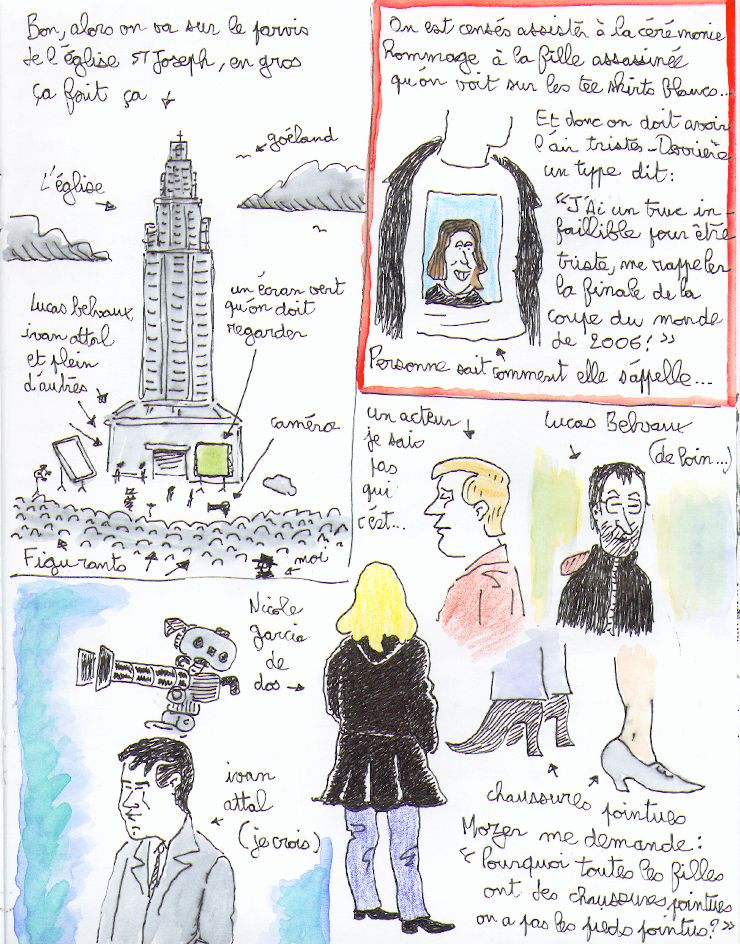 Bon, alors on va sur le parvis
de l'église ST Joseph, en gros
ça fait ça
goéland
L'église
un écran vert
qu'on doit
regarder
Lucas Belvaux
ivan attal
et plein
d'autres
caméra
Figurants
moi
On est censés assister à la cérémonie
hommage à la fille assassinée
qu'on voit sur les tee shirts blancs...
Et donc on doit avoir
l'air tristes - Derrière
un type dit:
"J'Ai un truc in-
faillible pour être
triste, me rappeler
la finale de la
coupe du monde
de 2006!"
Personne sait comment elle s'appelle...
un acteur
je sais
pas
qui
c'est...
Lucas Belvaux
(de loin...)
Nicole
garcia
de
dos
ivan
attal
(je crois)
chaussures pointues
Mozer me demande:
"Pourquoi toutes les filles
ont des chaussures pointues
on a pas les pieds pointus?"